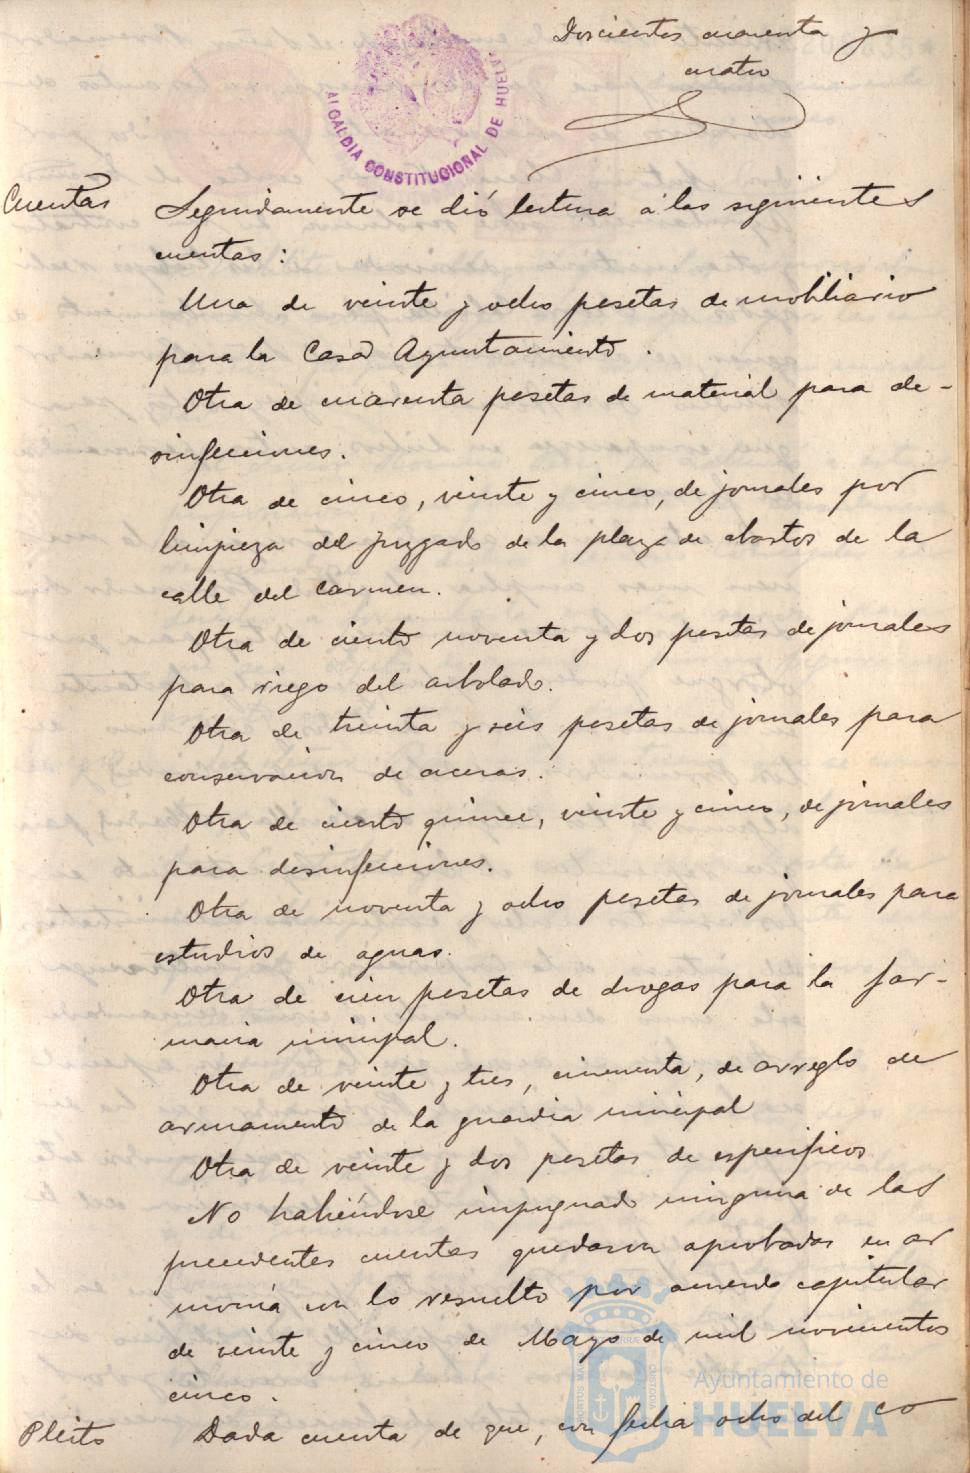 Doscientos cuarenta y
cuatro
ALCALDIA CONSTITUCIONAL DE HUELVA
Cuentas
Seguidamente se dió lectura á las siguientes
cuentas:
Una de veinte y ocho pesetas de mobiliario
para la Casa Ayuntamiento.
Otra de cuarenta pesetas de material para de-
sinfecciones.
Otra de cinco, veinte y cinco, de jornales por
limpieza del juzgado de la plaza de abastos de la
calle del Carmen.
Otra de ciento noventa y dos pesetas de jornales
para riego del arbolado.
Otra de treinta y seis pesetas de jornales para
conservacion de aceras.
Otra de ciento quince, veinte y cinco, de jornales
para desinfecciones.
Otra de noventa y ocho pesetas de jornales para
estudios de aguas.
Otra de cien pesetas de drogas para la far-
macia municipal.
Otra de veinte y tres, cincuenta, de arreglo de
armamento de la guardia municipal
Otra de veinte y dos pesetas de especificos
No habiéndose impugnado ninguna de las
precedentes cuentas quedaron aprobadas en ar
monia con lo resuelto por acuerdo capitular
de veinte y cinco de Mayo de mil novecientos
cinco.
Pleito
Dada cuenta de que, con fecha ocho del co
Ayuntamiento de
HUELVA